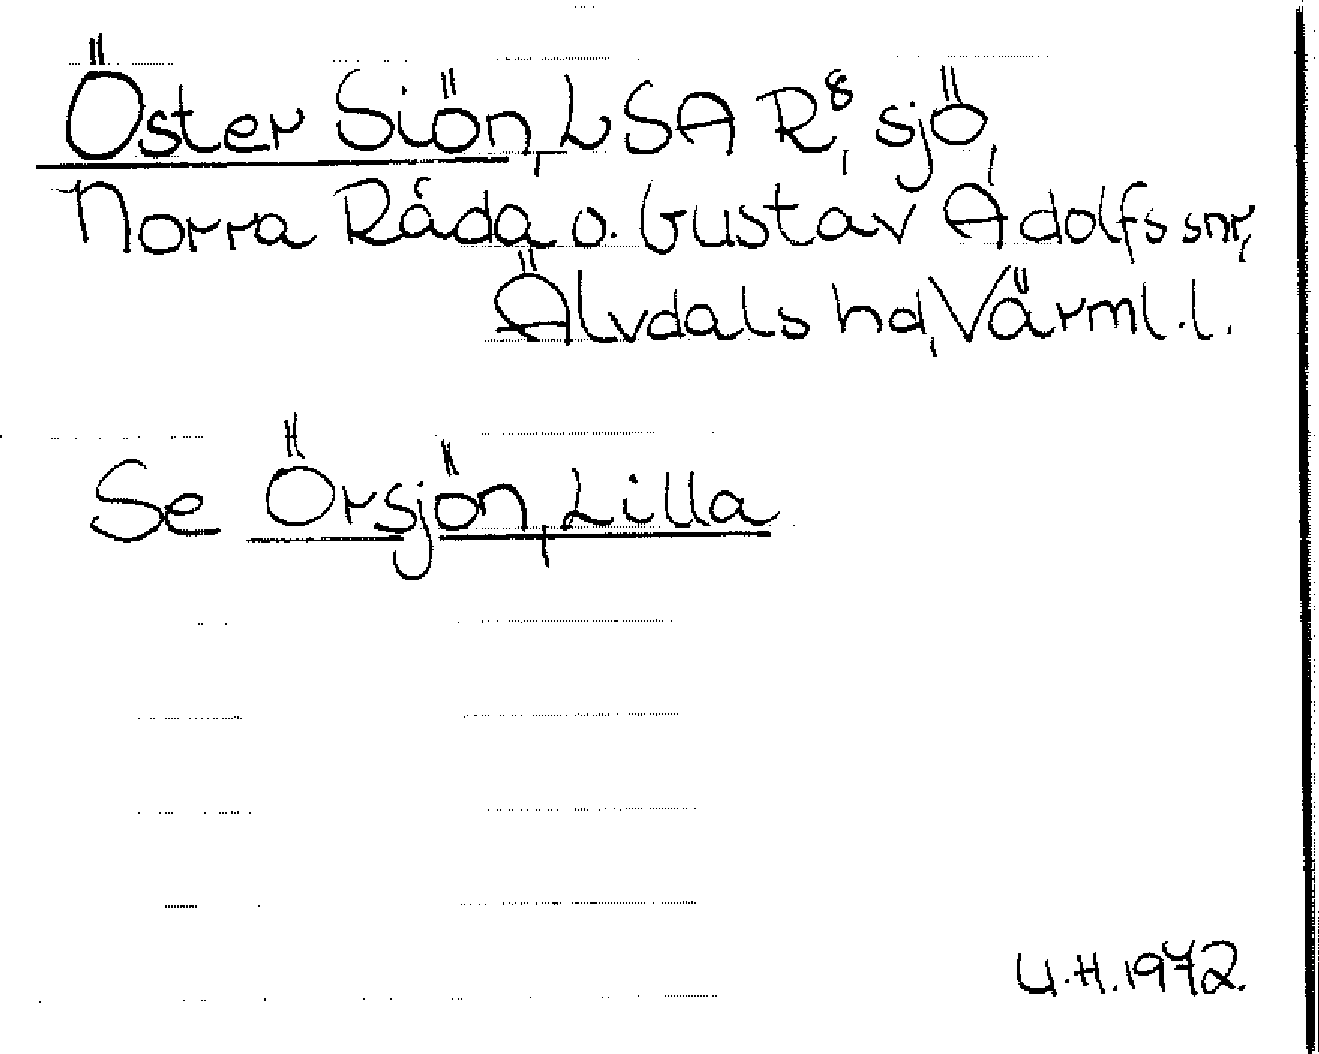 Öster Siön, LSA R⁸, sjö,
Norra Råda o. Gustav Adolfs snr,
Älvdals hd, Värml. l.
Se Örsjön, Lilla
U.H. 1972.